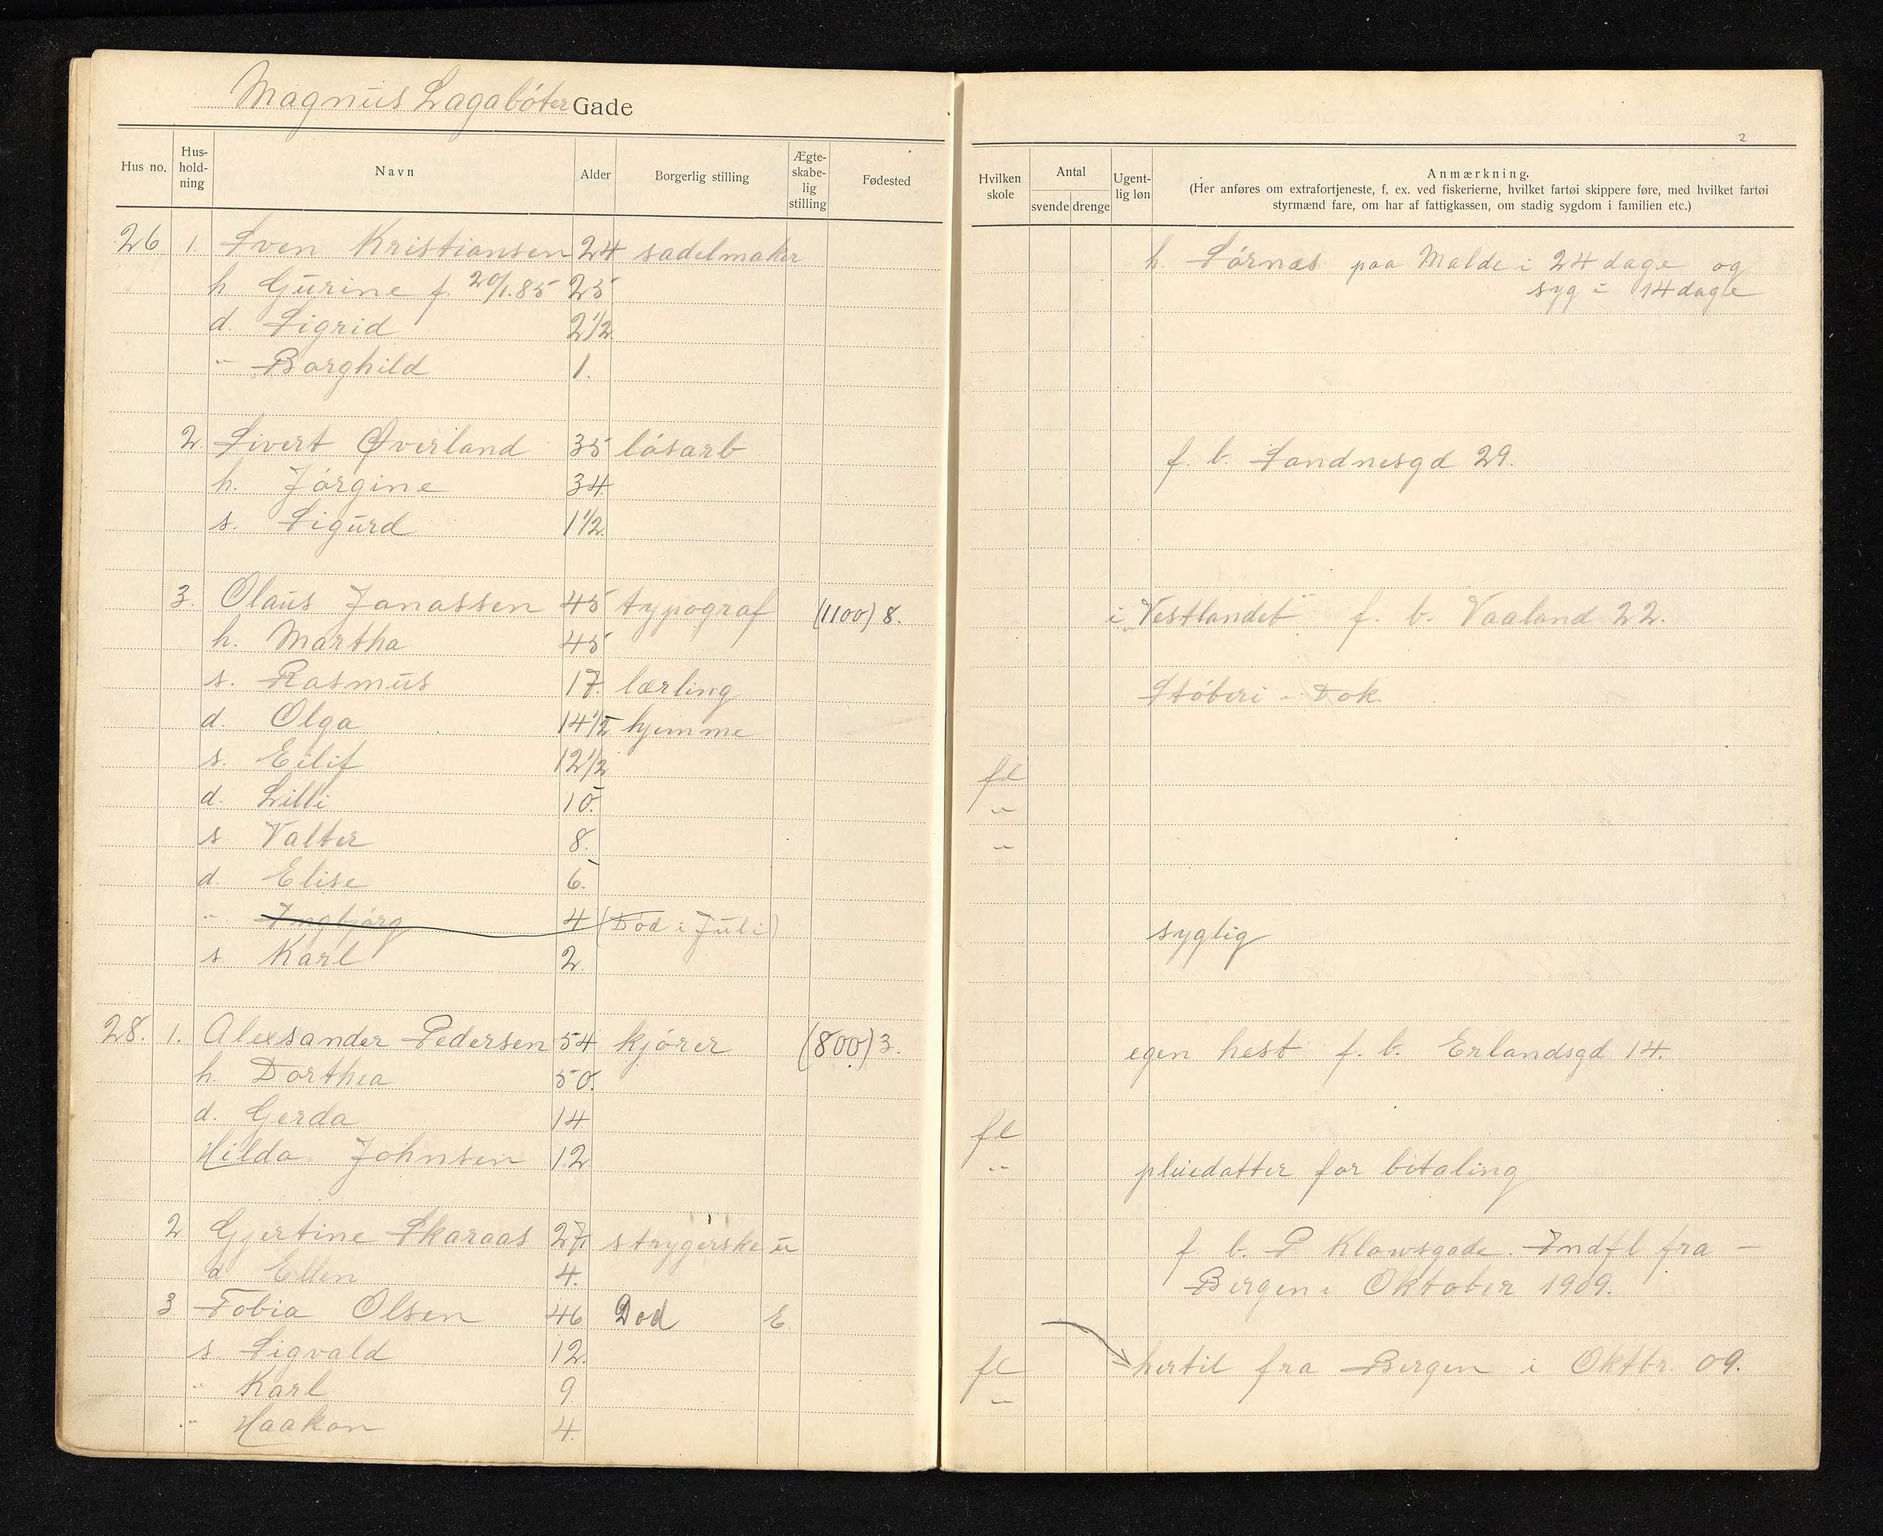 Magnus Lagabøter Gade
2
Hus no. Hus-hold-ning Navn Alder Borgerlig stilling Ægte-skabe-lig stilling Fødested
Hvilken skole Antal svende drenge Ugent-lig løn Anmærkning.
(Her anføres om extrafortjeneste, f. ex. ved fiskerierne, hvilket fartøi skippere føre, med hvilket fartøi
styrmænd fare, om har af fattigkassen, om stadig sygdom i familien etc.)
26 1. Sven Kristiansen 24 sadelmaker h. Sørnæs paa Malde i 24 dage og
h Gurine f. 20/1.85 25 syg i 14 dage
d. Sigrid 2 1/2
" Borghild 1.
2. Sivert Øverland 35 løsarb f. b. Sandnesgd 29.
h. Jørgine 34
s. Sigurd 1 1/2
3. Olaus Jonassen 45 typograf (1100) 8. i "Vestlandet" f. b. Vaaland 22.
h. Martha 45
s. Rasmus 17. lærling Støberi i Dok.
d. Olga 14 1/2 hjemme
s. Eilif 12 1/2 fl
d. Lilli 10. "
s. Valter 8. "
d. Elise 6.
" Ingbjørg 4 (Død i Juli) syglig
s Karl 2.
28. 1. Alexsander Pedersen 54 kjører (800) 3. egen hest f. b. Erlandsgd 14.
h. Dorthea 50.
d. Gerda 14 fl
Hilda Johnsen 12 " pleiedatter for betaling
2 Gjertine Skaraas 27. strygerske u f. b. P Klowsgade. Indfl fra –
d Ellen 4. Bergen i Oktober 1909.
3. Tobia Olsen 46 Død E.
s Sigvald 12. fl hertil fra Bergen i Oktbr. 09.
" Karl 9 "
" Haakon 4.